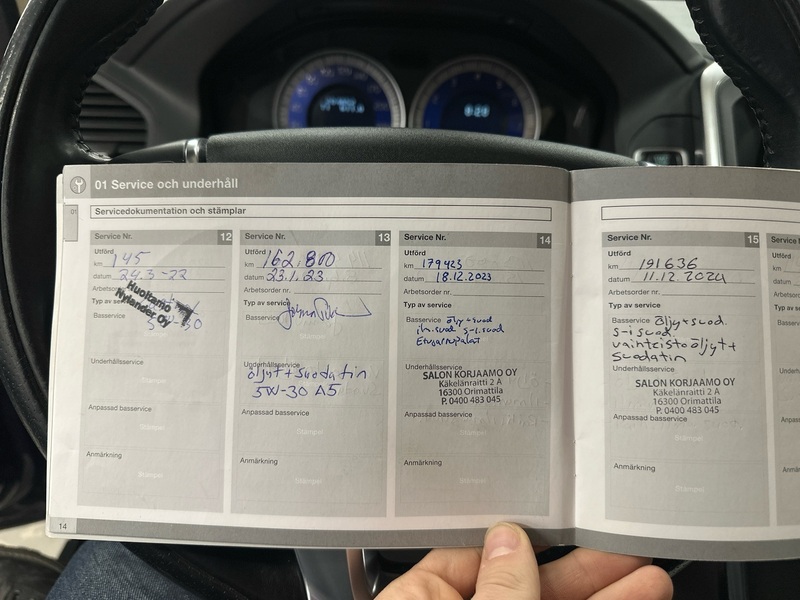 01 Service och underhåll
01
Servicedokumentation och stämplar
Service Nr. 12
Utförd
km 145
datum 24.3-22
Arbetsorder nr.
Typ av service
Huoltamo
Nylander Oy
Basservice
5W-30
Underhållsservice
Stämpel
Anpassad basservice
Stämpel
Anmärkning
Stämpel
Service Nr. 13
Utförd
km 162,800
datum 23.1.23
Arbetsorder nr.
Typ av service
Basservice
Underhållsservice
öljyt+suodatin
5W-30 A5
Anpassad basservice
Stämpel
Anmärkning
Stämpel
Service Nr. 14
Utförd
km 179423
datum 18.12.2023
Arbetsorder nr.
Typ av service
Basservice öljy+suod
ih.suod s-i.suod
Etujarrupalat
Underhållsservice
SALON KORJAAMO OY
Käkelänraitti 2 A
16300 Orimattila
P. 0400 483 045
Anpassad basservice
Anmärkning
Stämpel
Service Nr. 15
Utförd
km 191636
datum 11.12.2024
Arbetsorder nr.
Typ av service
Basservice Öljy+suod.
s-i suod
vaihteistoöljyt+
suodatin
Underhållsservice
SALON KORJAAMO OY
Käkelänraitti 2 A
16300 Orimattila
P. 0400 483 045
Anpassad basservice
Anmärkning
Stämpel
14